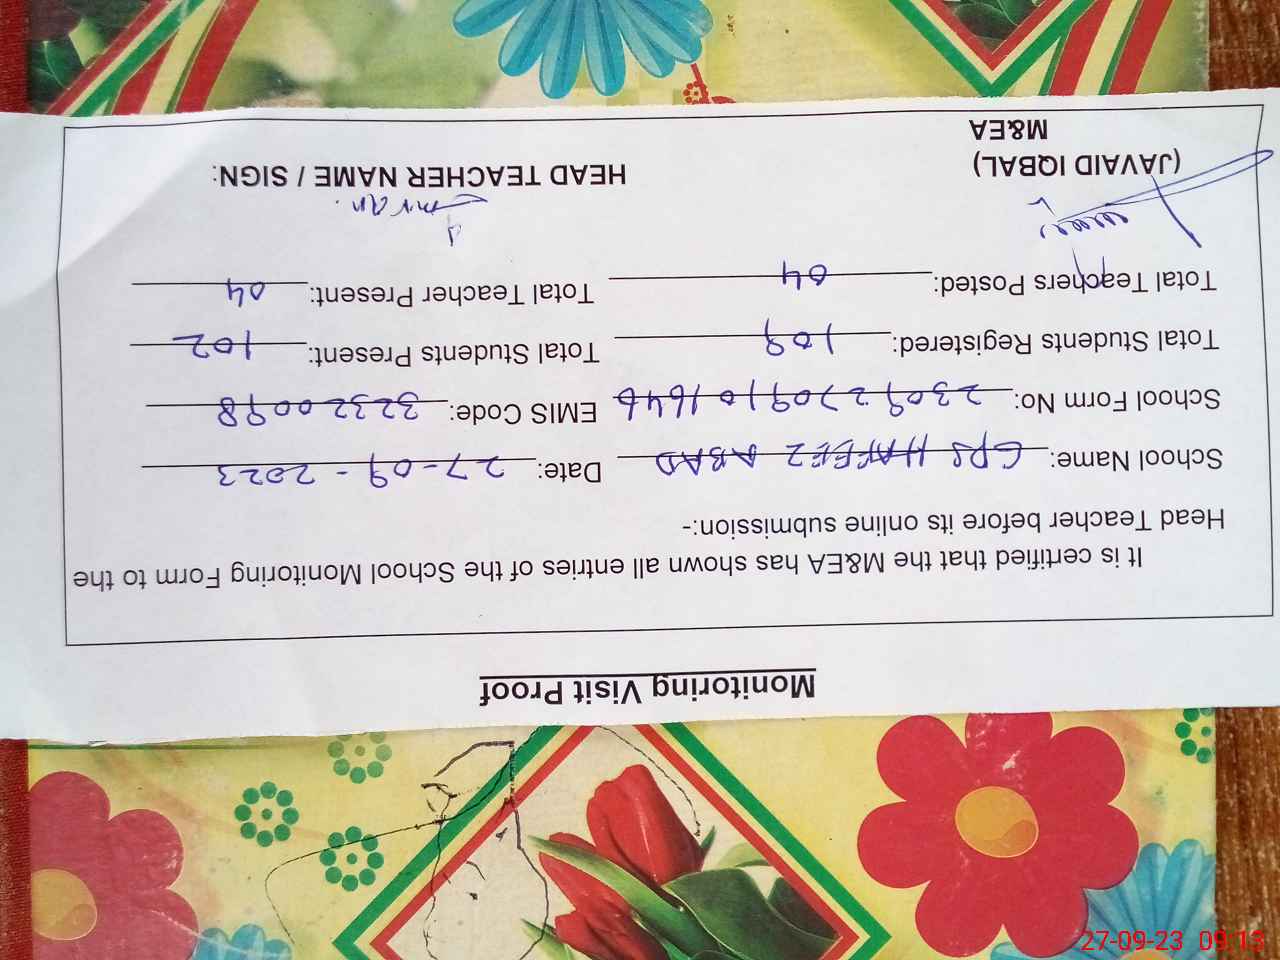 Monitoring Visit Proof
It is certified that the M&EA has shown all entries of the School Monitoring Form to the
Head Teacher before its online submission:-
School Name: GPS HAFEEZ ABAD Date: 27-09-2023
School Form No: 23092709101646 EMIS Code: 32320098
Total Students Registered: 109 Total Students Present: 102
Total Teachers Posted: 04 Total Teacher Present: 04
Imran.
(JAVAID IQBAL) HEAD TEACHER NAME / SIGN:
M&EA
27-09-23 09:13